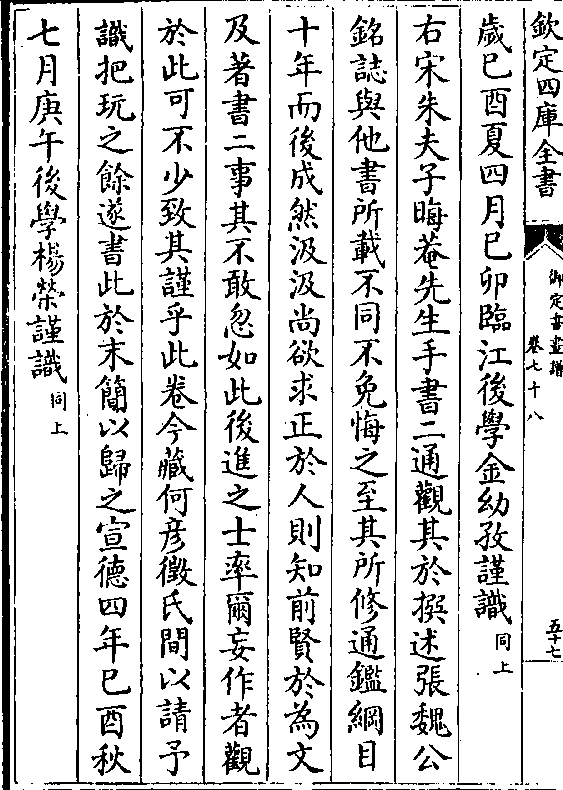 欽定四庫全書
御定書畫譜
卷七十八
五十七
歲己酉夏四月己卯臨江後學金幼孜謹識同上
右宋朱夫子晦菴先生手書二通觀其於撰述張魏公
銘誌與他書所載不同不免悔之至其所修通鑑綱目
十年而後成然汲汲尚欲求正於人則知前賢於為文
及著書二事其不敢忽如此後進之士率爾妄作者觀
於此可不少致其謹乎此卷今藏何彦徵氏間以請予
識把玩之餘遂書此於末簡以歸之宣德四年己酉秋
七月庚午後學楊榮謹識同上